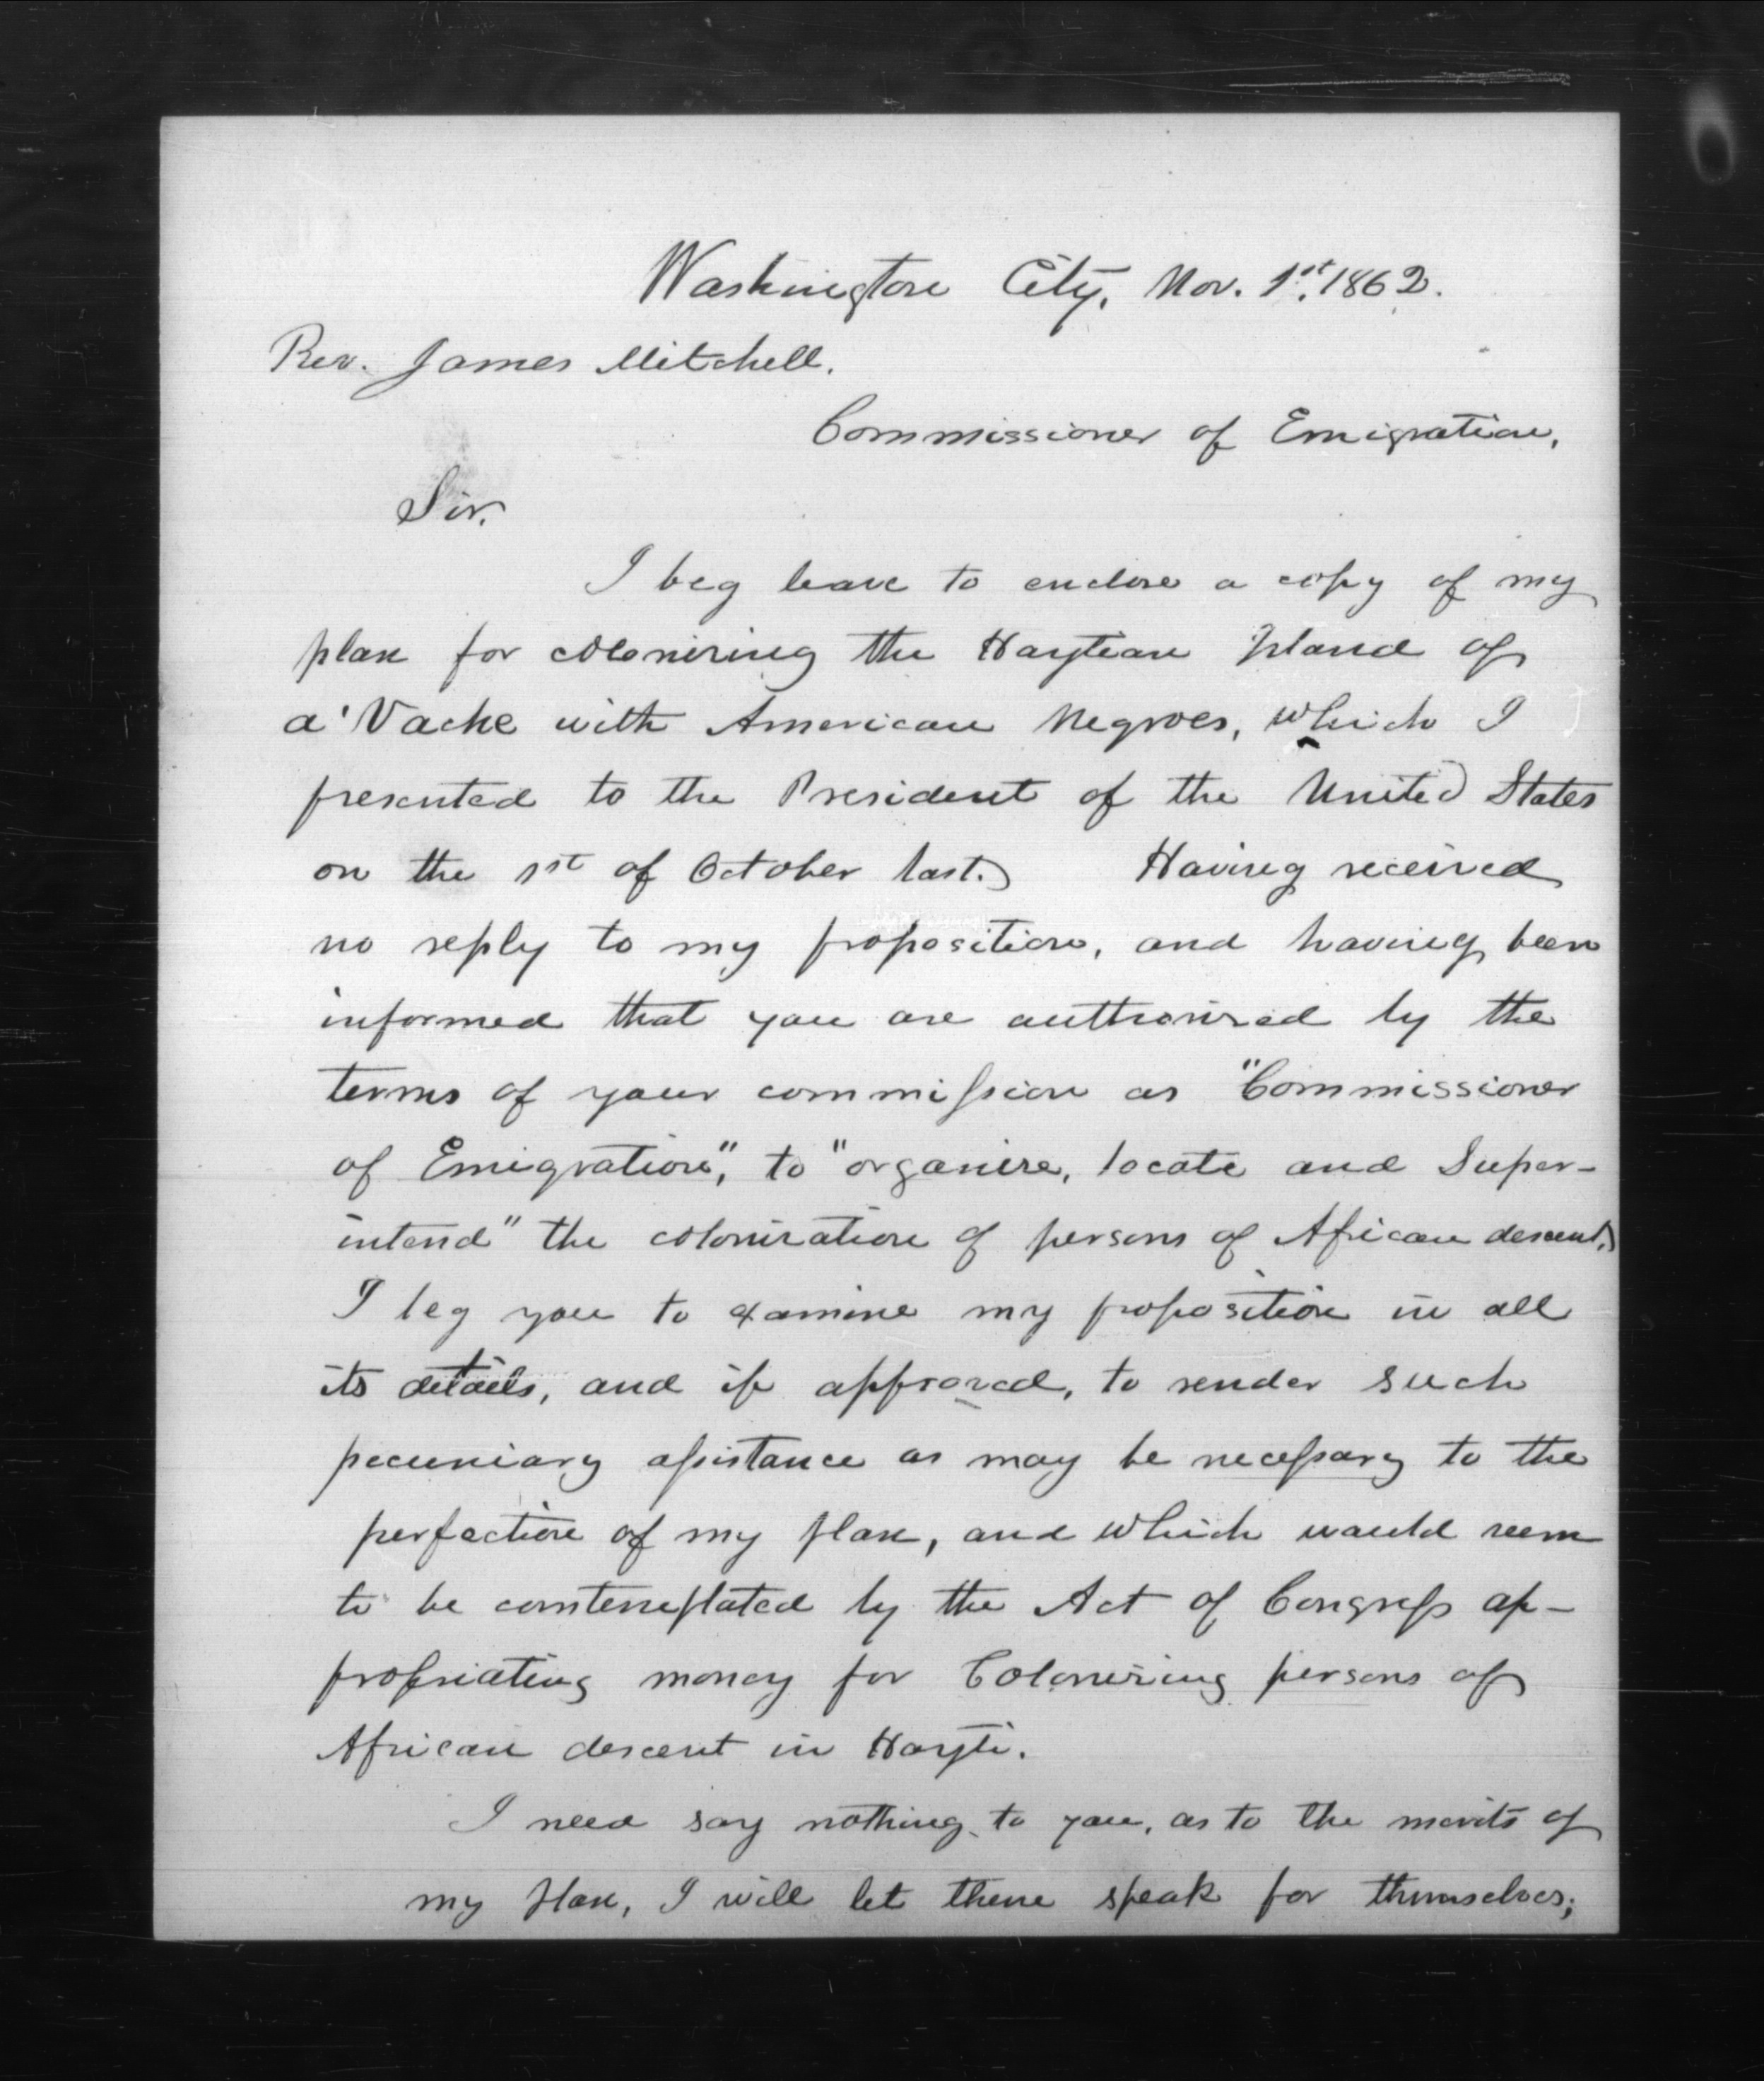 Washington City, Nov. 1st, 1862.
Rev. James Mitchell.
Commissioner of Emigration,
Sir.
I beg leave to enclose a copy of my
plan for colonizing the Haytian Island of
a'Vache with American Negroes, which I
presented to the President of the United States
on the 1st of October last. Having received
no reply to my proposition, and having been
informed that you are authorized by the
terms of your commission as "Commissioner
of Emigration", to "organize, locate and Super-
intend" the colonization of persons of African descent,
I beg you to examine my proposition in all
its details, and if approved, to render such
pecuniary assistance as may be necessary to the
perfection of my plan, and which would seem
to be contemplated by the Act of Congress ap-
propriating money for Colonizing persons of
African descent in Hayti.
I need say nothing to you, as to the merits of
my plan, I will let them speak for themselves;